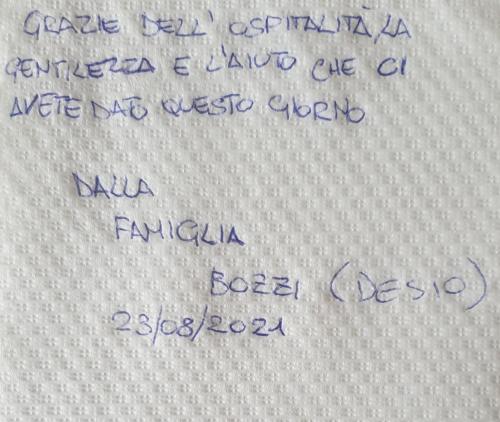 GRAZIE DELL' OSPITALITÀ, LA
GENTILEZZA E L'AIUTO CHE CI
AVETE DATO QUESTO GIORNO
DALLA
FAMIGLIA
BOZZI (DESIO)
23/08/2021